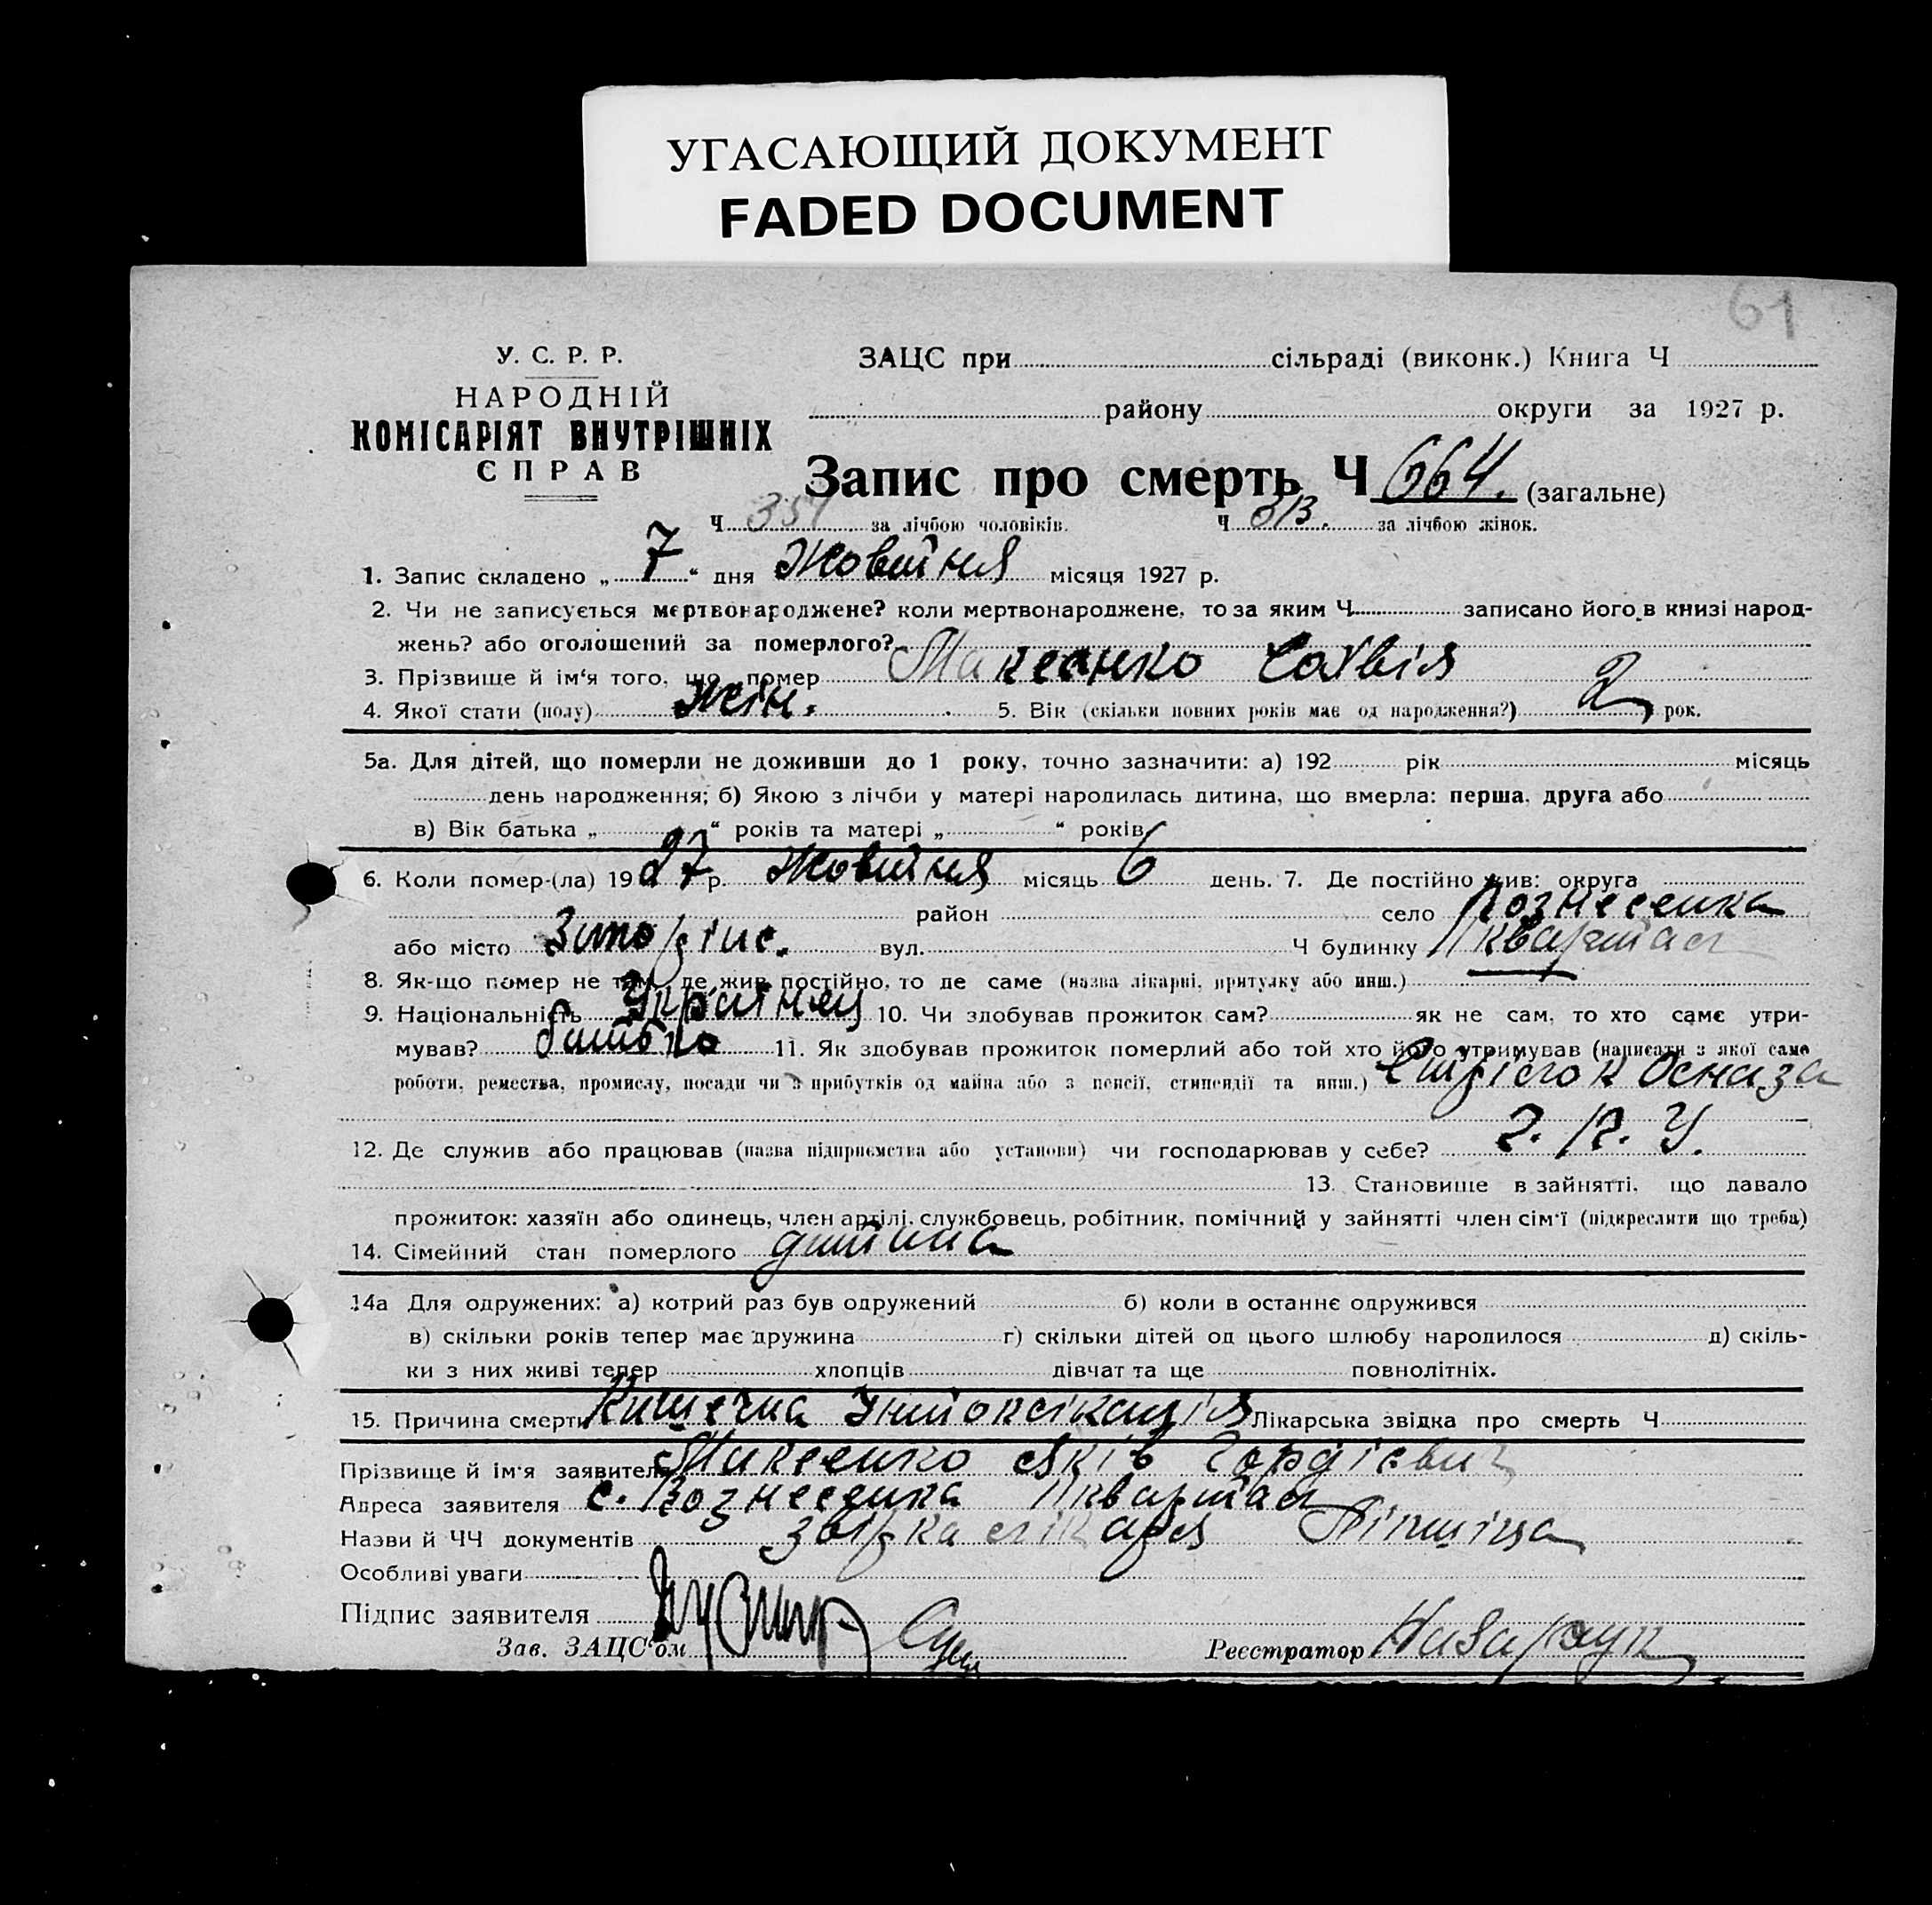 УГАСАЮЩИЙ ДОКУМЕНТ
FADED DOCUMENT
61
У. С. Р. Р.
НАРОДНІЙ
КОМІСАРІЯТ ВНУТРІШНІХ
СПРАВ
ЗАЦС при сільраді (виконк.) Книга Ч
району округи за 1927 р.
Запис про смерть Ч 664. (загальне)
Ч 351 за лічбою чоловіків. Ч 313. за лічбою жінок.
1. Запис складено „ 7 “ дня Жовтня місяця 1927 р.
2. Чи не записується мертвонароджене? коли мертвонароджене, то за яким Ч записано його в книзі народ-
жень? або оголошений за померлого?
3. Прізвище й ім‘я того, що помер Макеенко
4. Якої стати (полу) жін. 5. Вік (скільки повних років має од народження?) 2 рок.
5а. Для дітей, що померли не доживши до 1 року, точно зазначити: а) 192 рік місяць
день народження; б) Якою з лічби у матері народилась дитина, що вмерла: перша, друга або
в) Вік батька „ “ років та матері „ “ років
6. Коли помер-(ла) 1927 р. Жовтня місяць 6 день. 7. Де постійно жив: округа
район село Вознесенка
або місто вул. Ч будинку квартал
8. Як-що помер не там, де жив постійно, то де саме (назва лікарні, притулку або инш.)
9. Національність 10. Чи здобував прожиток сам? як не сам, то хто саме утри-
мував? батько 11. Як здобував прожиток померлий або той хто його утримував (написати з якої саме
роботи, ремества, промислу, посади чи з прибутків од майна або з пенсії, стипендії та инш.) Стрілок
12. Де служив або працював (назва підприємства або установи) чи господарював у себе? Г. П. У.
13. Становище в зайнятті, що давало
прожиток: хазяїн або одинець, член артілі, службовець, робітник, помічний у зайнятті член сім‘ї (підкреслити що треба)
14. Сімейний стан померлого дитина
14а Для одружених: а) котрий раз був одружений б) коли в останнє одружився
в) скільки років тепер має дружина г) скільки дітей од цього шлюбу народилося д) скіль-
ки з них живі тепер хлопців дівчат та ще повнолітніх.
15. Причина смерти Кишечна Інтоксікація Лікарська звідка про смерть Ч
Прізвище й ім‘я заявителя Макеенко Яків Гордієвич
Адреса заявителя с. Вознесенка квартал
Назви й ЧЧ документів звідка лікаря
Особливі уваги
Підпис заявителя
Зав. ЗАЦС‘ом Реєстратор